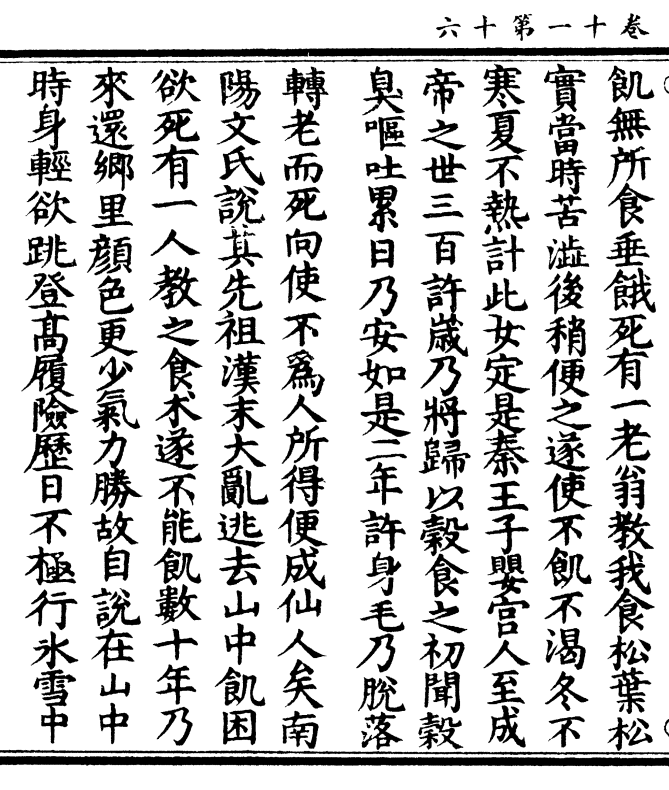 卷十一第十六
飢無所食垂餓死有一老翁教我食松葉松
實當時苦澁後稍便之遂使不飢不渴冬不
寒夏不熱計此女定是秦王子嬰宮人至成
帝之世三百許歲乃將歸以穀食之初聞穀
臭嘔吐累日乃安如是二年許身毛乃脫落
轉老而死向使不爲人所得便成仙人矣南
陽文氏說其先祖漢末大亂逃去山中飢困
欲死有一人教之食朮遂不能飢數十年乃
來還鄉里顏色更少氣力勝故自說在山中
時身輕欲跳登高履險歷日不極行氷雪中